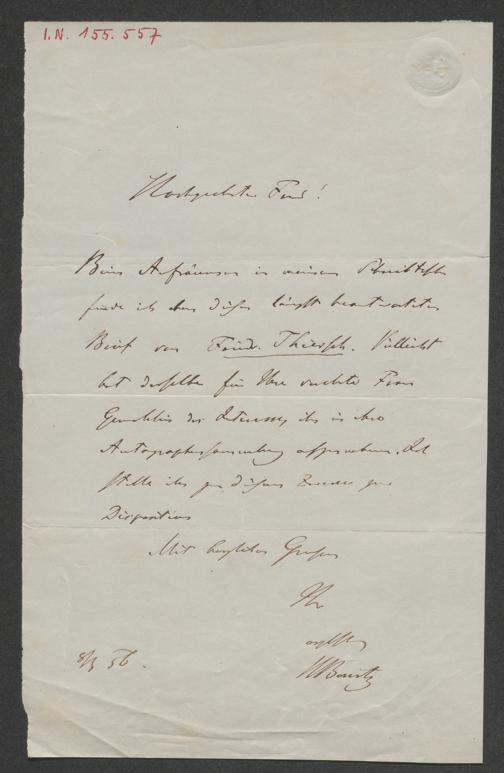 I.N. 155.557
Hochgeehrter Freund!
Beim Aufräumen in meinem Schreibtisch
finde ich eben diesen längst beantworteten
Brief von Friedr. Thiersch. Vielleicht
hat derselbe für Ihre verehrte Frau
Gemahlin das Interesse, ihn in ihre
Autographensammlung aufzunehmen. Ich
stelle ihn zu diesem Zwecke zur
Disposition
Mit herzlichen Grüßen
Ihr
HBonitz
56.